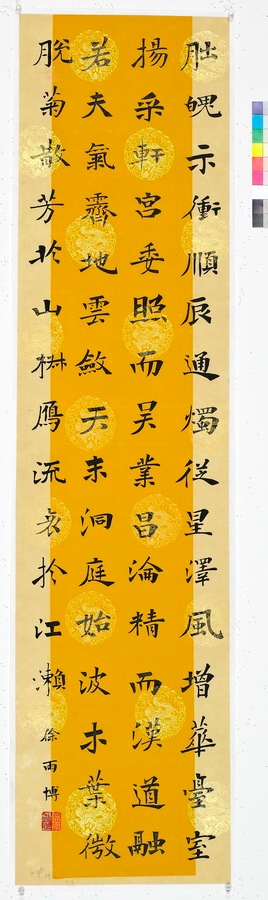 朏魄示衝順辰通燭從星澤風增華臺室
揚采軒宮委照而吳業昌淪精而漢道融
若夫氣霽地雲斂天末洞庭始波木葉微
脫菊散芳於山椒鴈流哀於江瀨
徐雨博